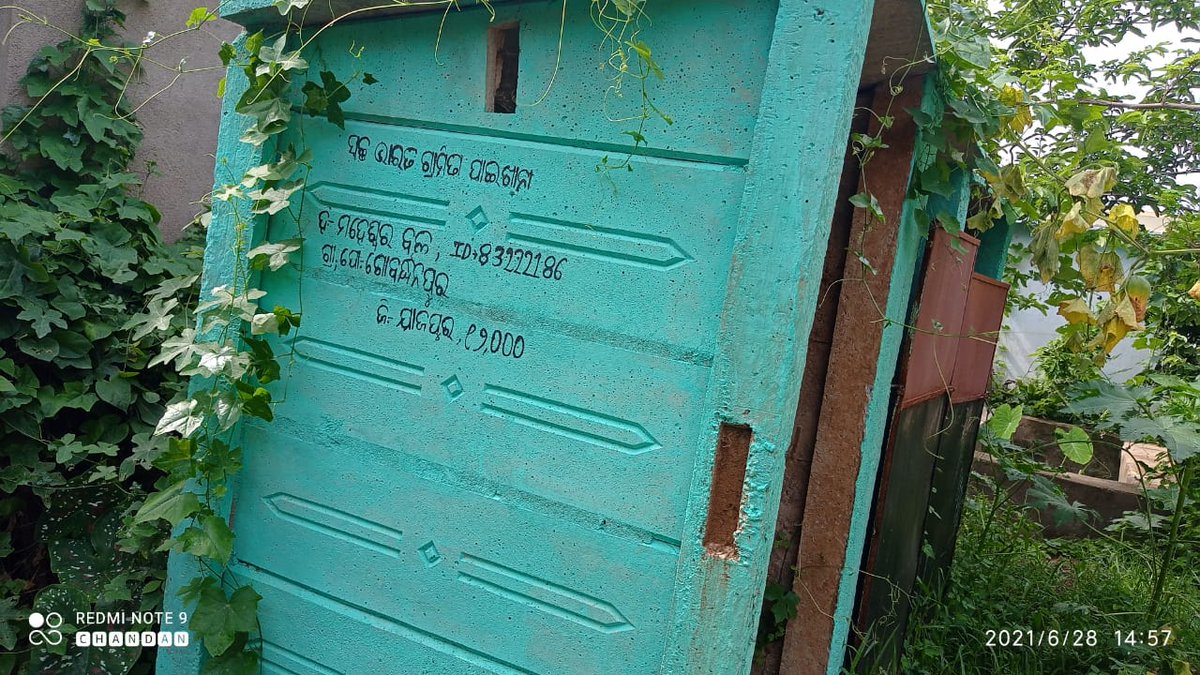 ସ୍ବଚ୍ଛ ଭାରତ ଗ୍ରାମିଣ ପାଇଖାନା
ହି- ମହେଶ୍ୱର ବଲ, ID.43222186
ଗ୍ରା, ପୋ- ଗୋବର୍ଦ୍ଧନପୁର
ଜି- ଯାଜପୁର, ୧୨,000
REDMI NOTE 9
CHANDAN
2021/6/28 14:57